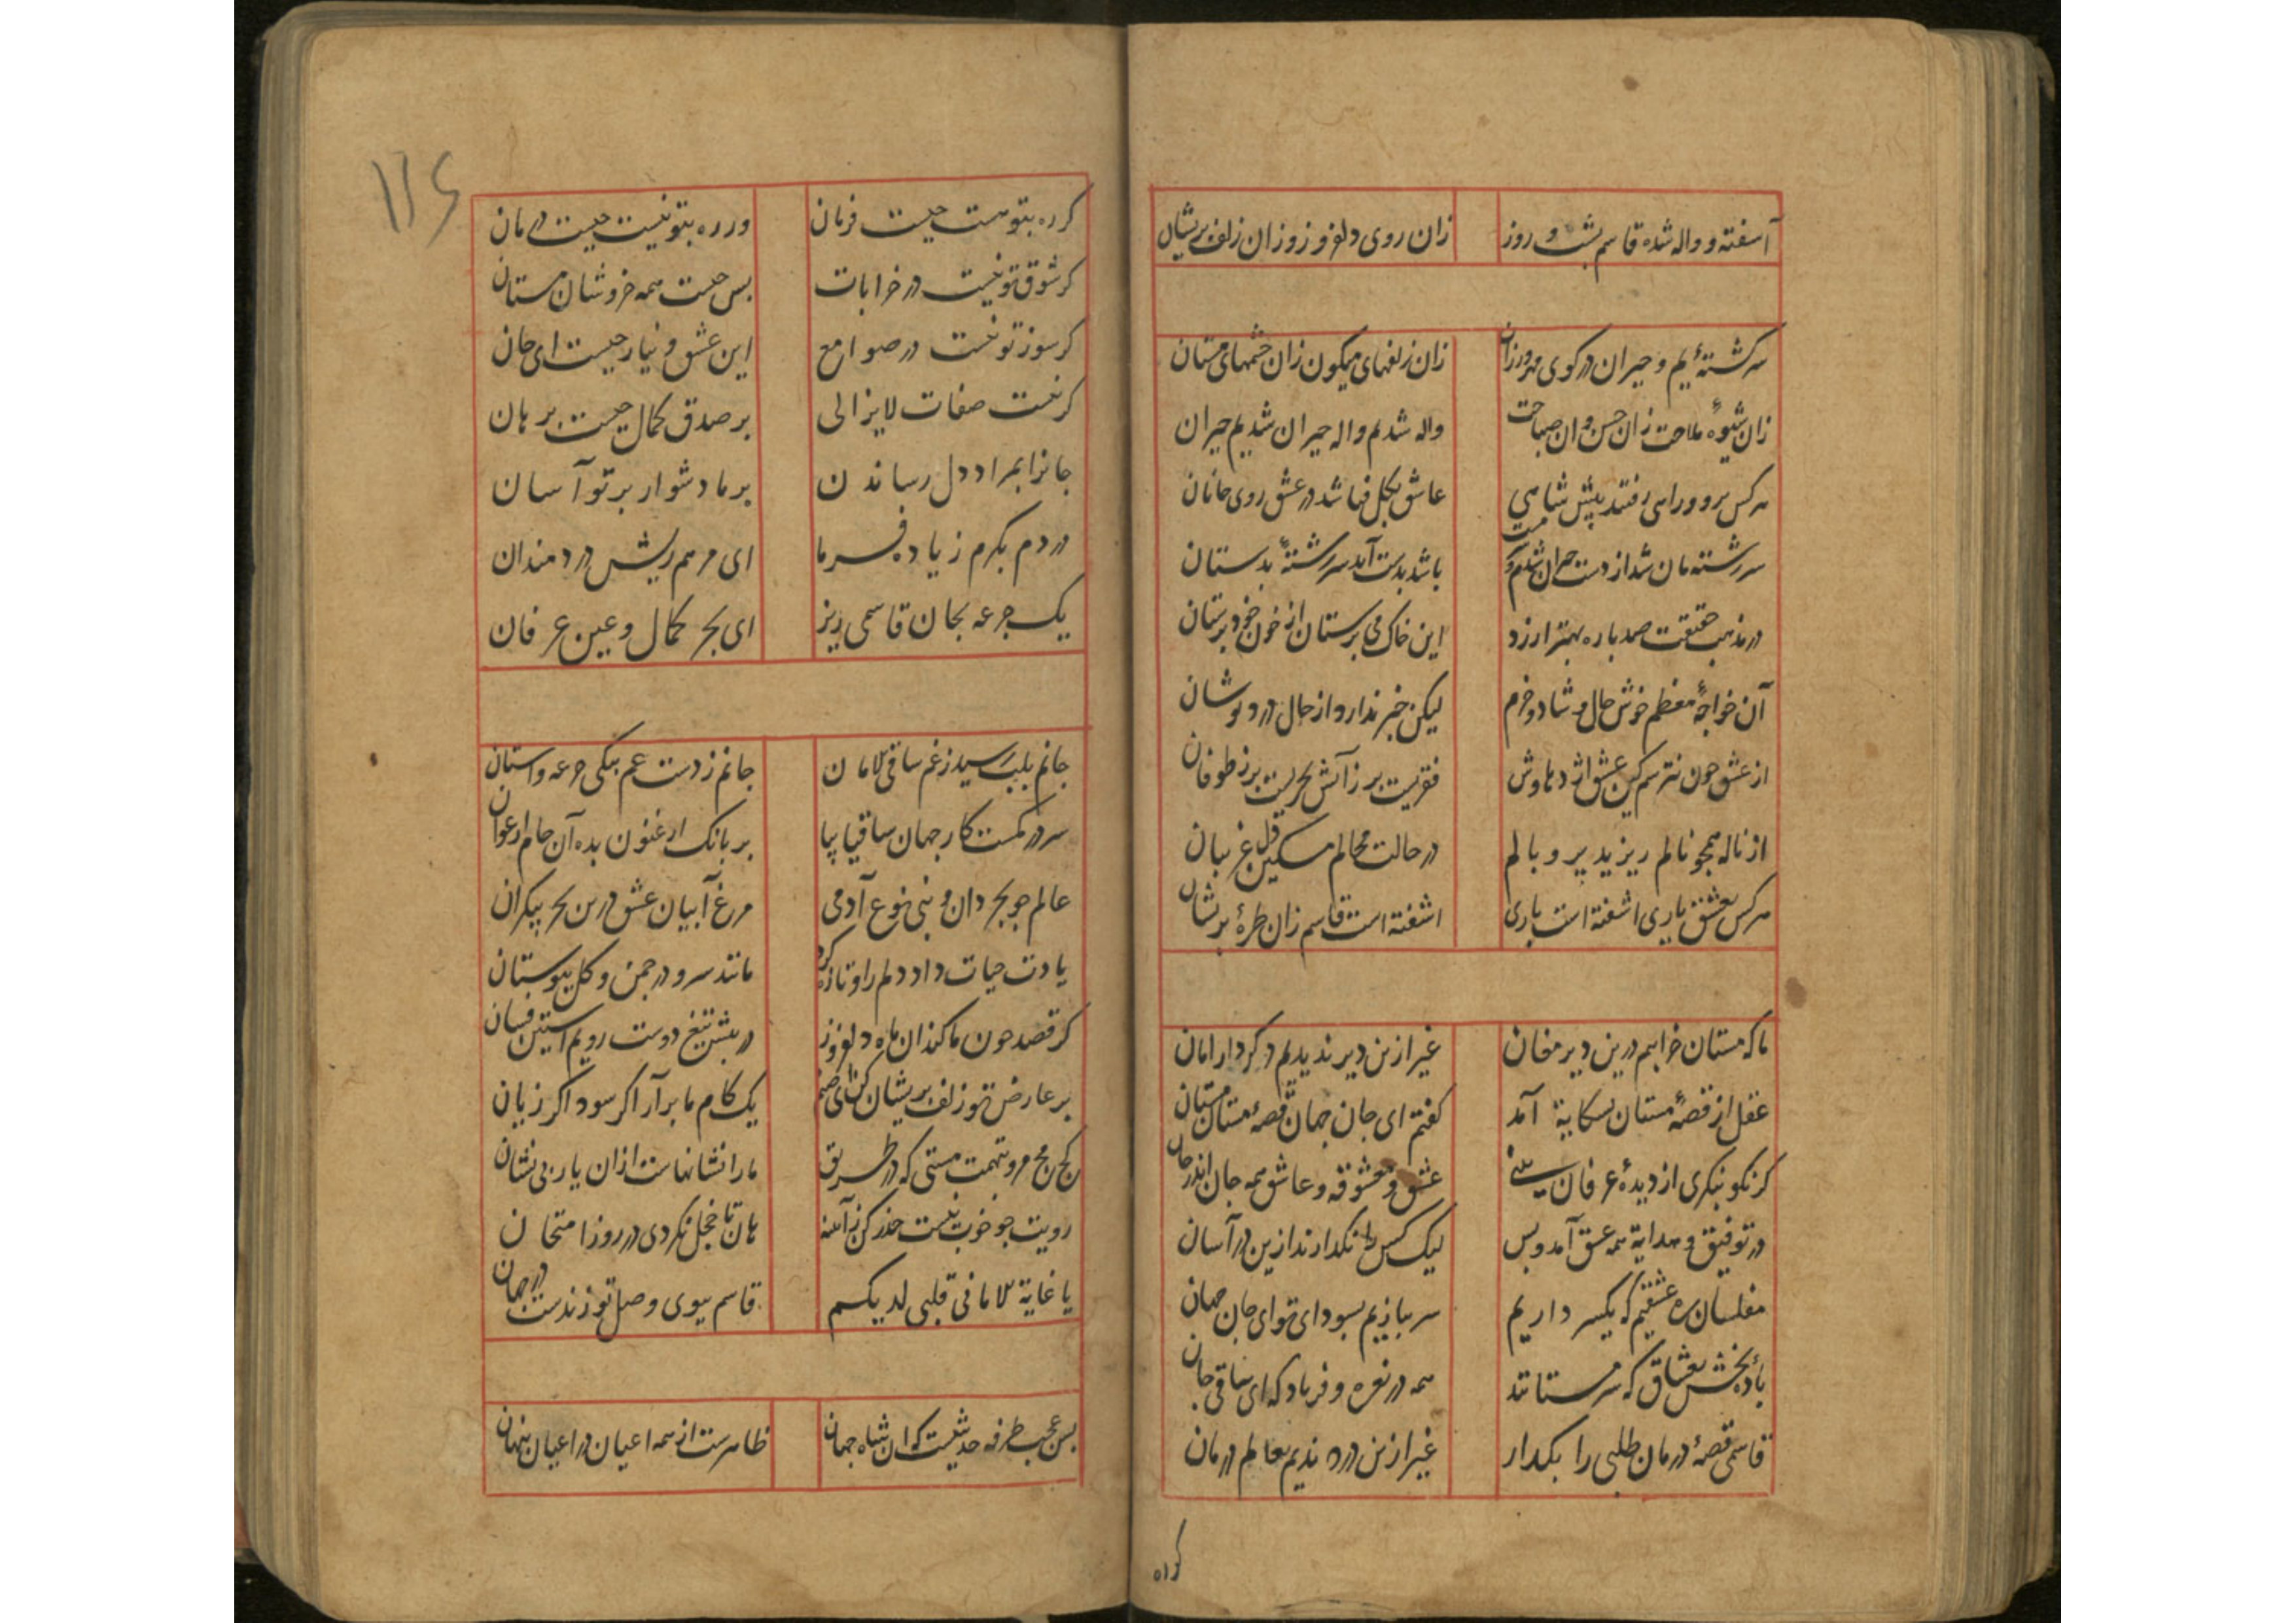 آشفته و واله شده قاسم بشب و روز زان روی دلفروز وزان زلف پریشان
سرگشته‌ٔیم و حیران در کوی مهرورزان زان زلفهای میکون زان چشمهای مستان
زان شیوهٔ ملاحت زان حسن وان صباحت واله شدیم واله حیران شدیم حیران
هرکس برو و راهی رفتند پیش شاهی عاشق بکل فنا شد در عشق روی جانان
سررشته‌مان شد از دست حیران شدیم و سرمست باشد بدست آید سررشتهٔ بدستان
در مذهب حقیقت صد باره بهتر ارزد این خاک می پرستان از خون خود پرستان
آن خواجهٔ معظم خوش حال و شاد و خرم لیکن خبر ندارد از حال دردنوشان
از عشق چون نترسم کین عشق اژدهاوش فقریست پر ز آتش بحریست پر ز طوفان
از ناله همچو نالم ریزید پر و بالم در حالت محالم مسکین دل غریبان
هرکس بعشق یاری اشفته است باری اشفته است قاسم زان طرهٔ پریشان
ما که مستان خرابیم درین دیر مغان غیر ازین دیر ندیدیم دکر دار امان
عقل از قصهٔ مستان بشکایة آمد کفتم ای جان جهان قصهٔ مستان مستان
کر نکو بنکری از دیدهٔ عرفان بینی عشق و معشوقه و عاشق همه جان اندر جان
در توفیق و هدایة همه عشق آمد و بس لیک کس را نکدارند ازین در آسان
مفلسان ره عشقیم که یکسر داریم سر ببازیم بسودای تو ای جان جهان
بادهٔ بخش بعشاق که سرمستانند همه در نعره و فریاد که ای ساقی جان
قاسمی قصهٔ درمان طلبی را بکدار غیر ازین درد ندیم بعالم درمان
کر ره
۱۱۶
کر ره بتو هست چیست فرمان ور ره بتو نیست چیست درمان
کر شوق تو نیست در خرابات بس چیست همه خروشان مستان
کر سوز تو نیست در صوامع این عشق و نیاز چیست ای جان
کر نیست صفات لایزالی بر صدق کمال چیست برهان
جانرا بمراد دل رساندن بر ما دشوار بر تو آسان
دردم بکرم زیاده فرما ای مرهم ریش دردمندان
یک جرعه بجان قاسمی ریز ای بحر کمال و عین عرفان
جانم بلب رسید ز غم ساقی الامان جانم ز دست غم بیکی جرعه واستان
سر در کمست کار جهان ساقیا بیا بر بانک ارغنون بده آن جام ارغوان
عالم چو بحر دان و بنی نوع آدمی مرغ آبیان عشق درین بحر بیکران
یادت حیات داد دلم را و تازه کرد مانند سرو در چمن و کل ببوستان
کر قصد خون ما کند ان ماه دلفروز در پیش تیغ دوست رویم آستین فشان
بر عارض تو زلف پریشان کن ای صنم یک کام ما برآر اکر سود اکر زیان
کج مج مرو بتهمت مستی که در طریق ما را نشانهاست ازان یار بی نشان
رویت چو خوب نیست حذر کن ز آینه هان تا خجل نکردی در روز امتحان
یا غایة الامانی قلبی لدیکم قاسم ببوی وصل تو زندست در جهان
بس عجب طرفه حدیثیست که ان شاه جهان ظاهرست از همه اعیان در اعیان پنهان